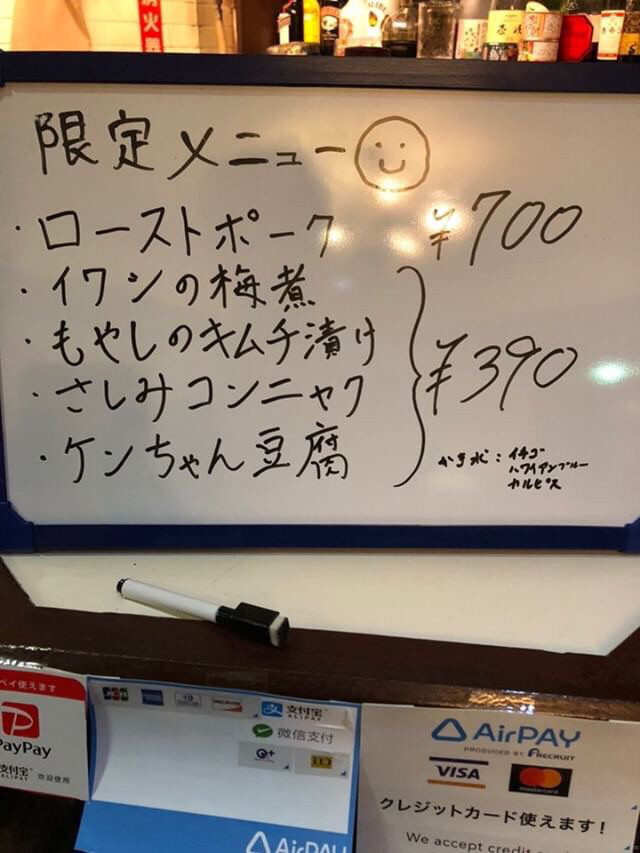 消火器
限定メニュー
・ローストポーク ¥700
・イワシの梅煮
・もやしのキムチ漬け
・さしみコンニャク
・ケンちゃん豆腐
¥390
かき氷：イチゴ
ハワイアンブルー
カルピス
ペイ使えます
PayPay
支付宝
ALIPAY
欢迎使用
JCB
DISCOVER
支付宝
ALIPAY
微信支付
AirPAY
AirPAY
PRODUCED BY RECRUIT
VISA
mastercard
クレジットカード使えます！
We accept credit